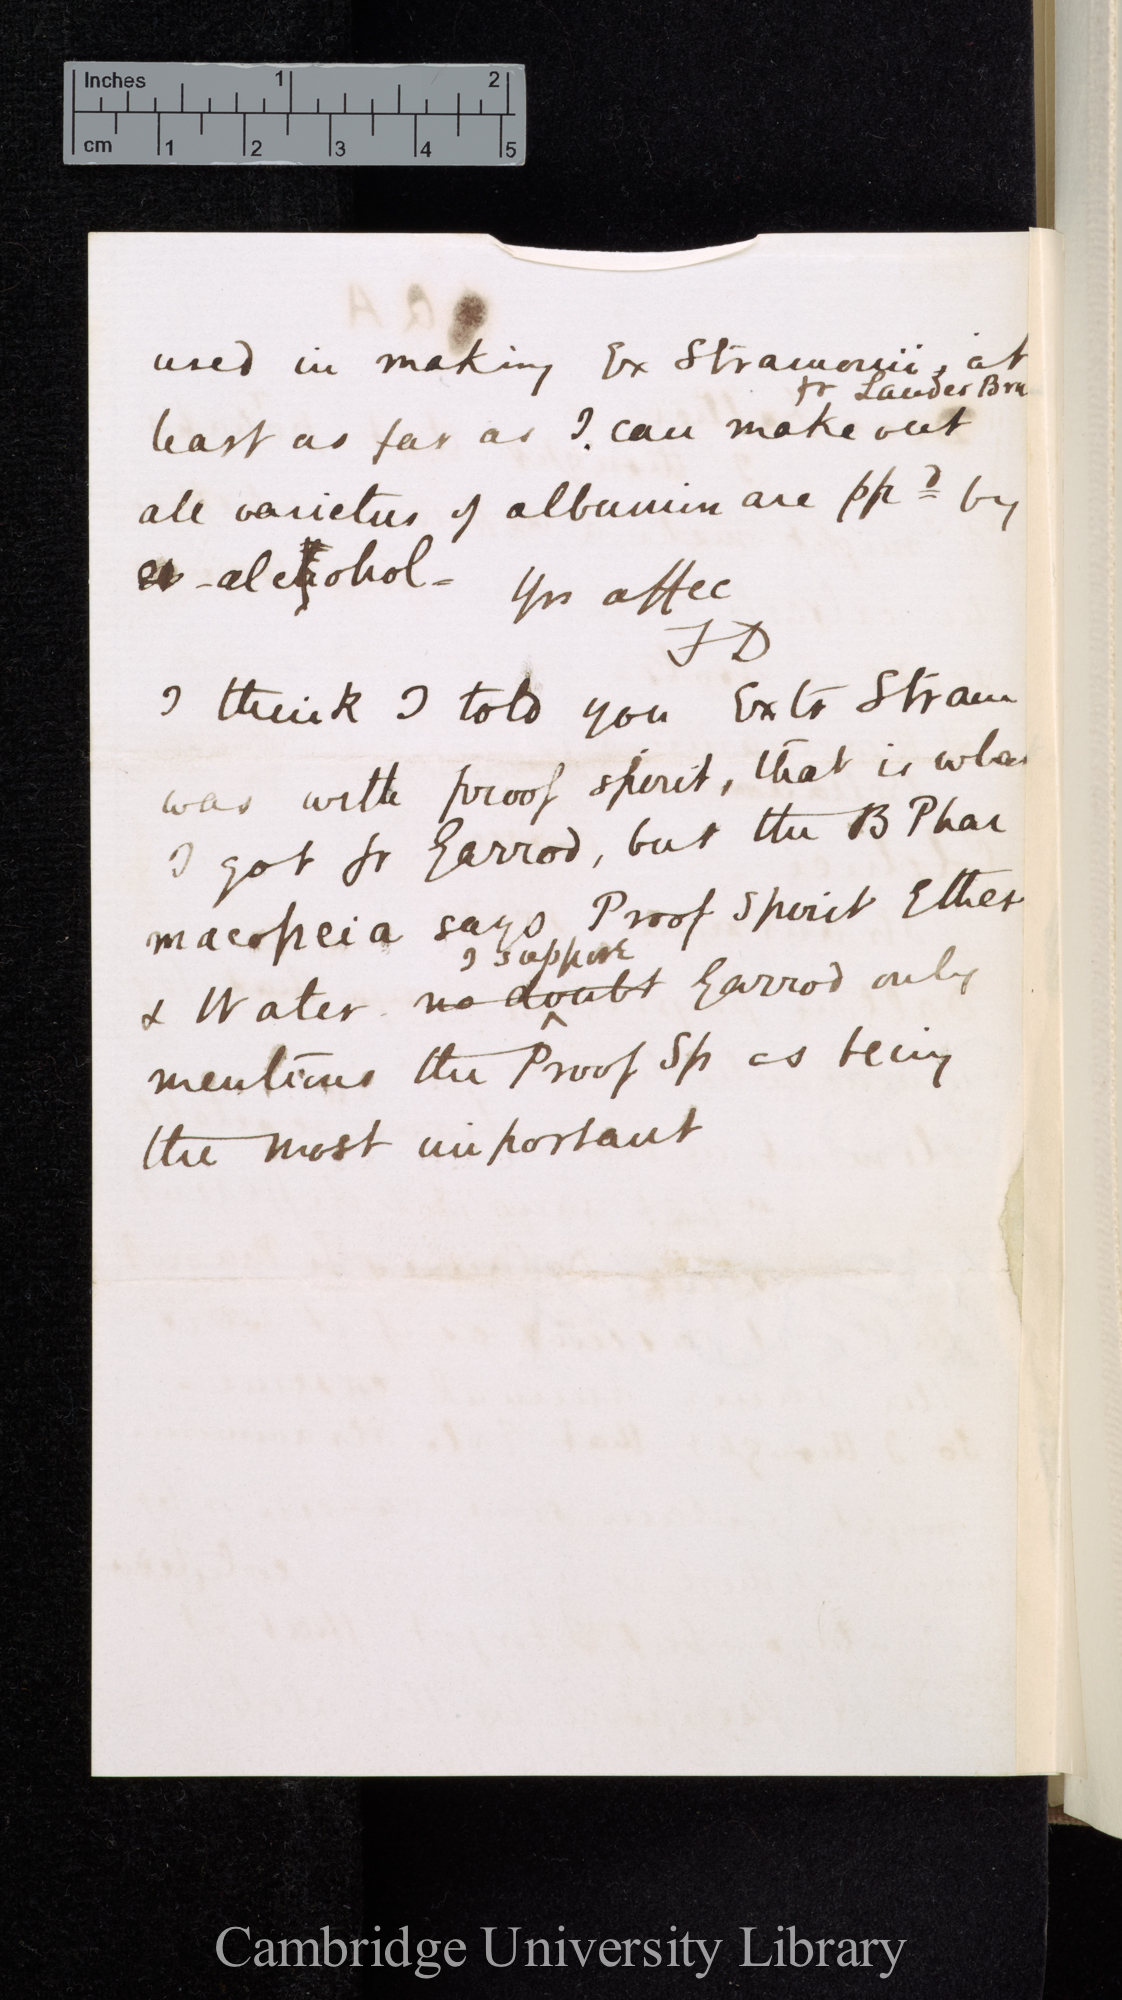 Inches 1 2
cm 1 2 3 4 5
used in making Ex Stramonii, at
fr Lauder Bru
least as far as I can make out
all varieties of albumin are ppd by
alcohol-
Yrs affec
FD
I think I told you Extr Stram
was with proof spirit, that is wha
I got fr Garrod, but the B Phar
macopeia says Proof Spirit Ether
I suppose
& Water no doubt Garrod only
mentions the Proof Sp as being
the most important
Cambridge University Library